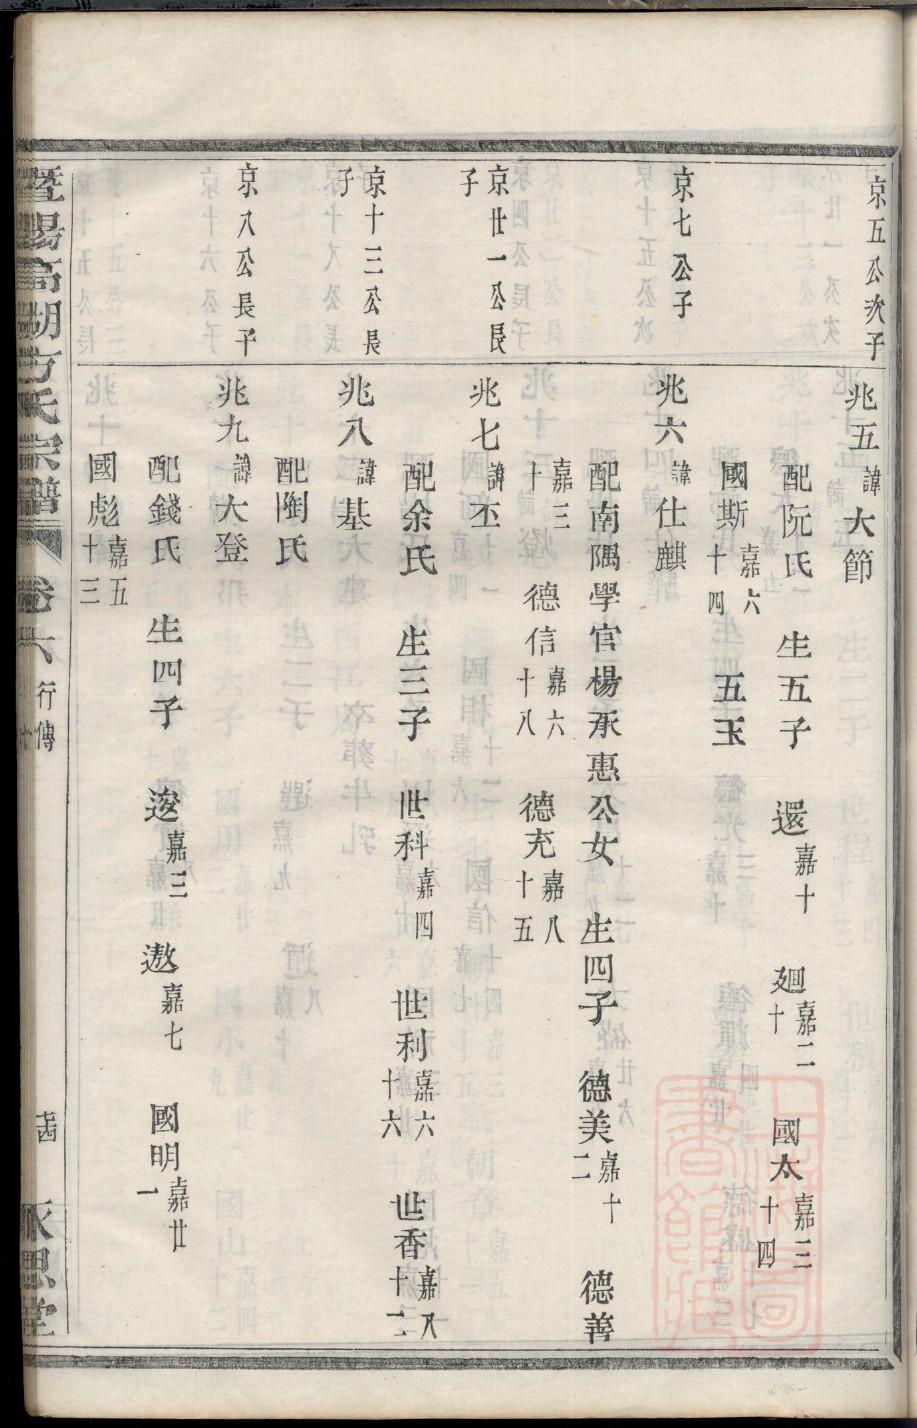 京五公次子
兆五諱大節
配阮氏 生五子 還嘉十 廻嘉二十 國太嘉三十四
國斯嘉六十四 五玉
京七公子
兆六諱仕麒
配南隅學官楊承惠公女 生四子 德美嘉十二 德善
嘉三十 德信嘉六十八 德充嘉八十五
京廿一公長子
兆七諱丕
配余氏 生三子 世科嘉四 世利嘉六十六 世香嘉八十二
京十三公長子
兆八諱基
配陶氏
京八公長子
兆九諱大登
配錢氏 生四子 逡嘉三 遨嘉七 國明嘉廿一
國彪嘉五十三
暨陽高湖方氏宗譜 卷六 行傳
永思堂